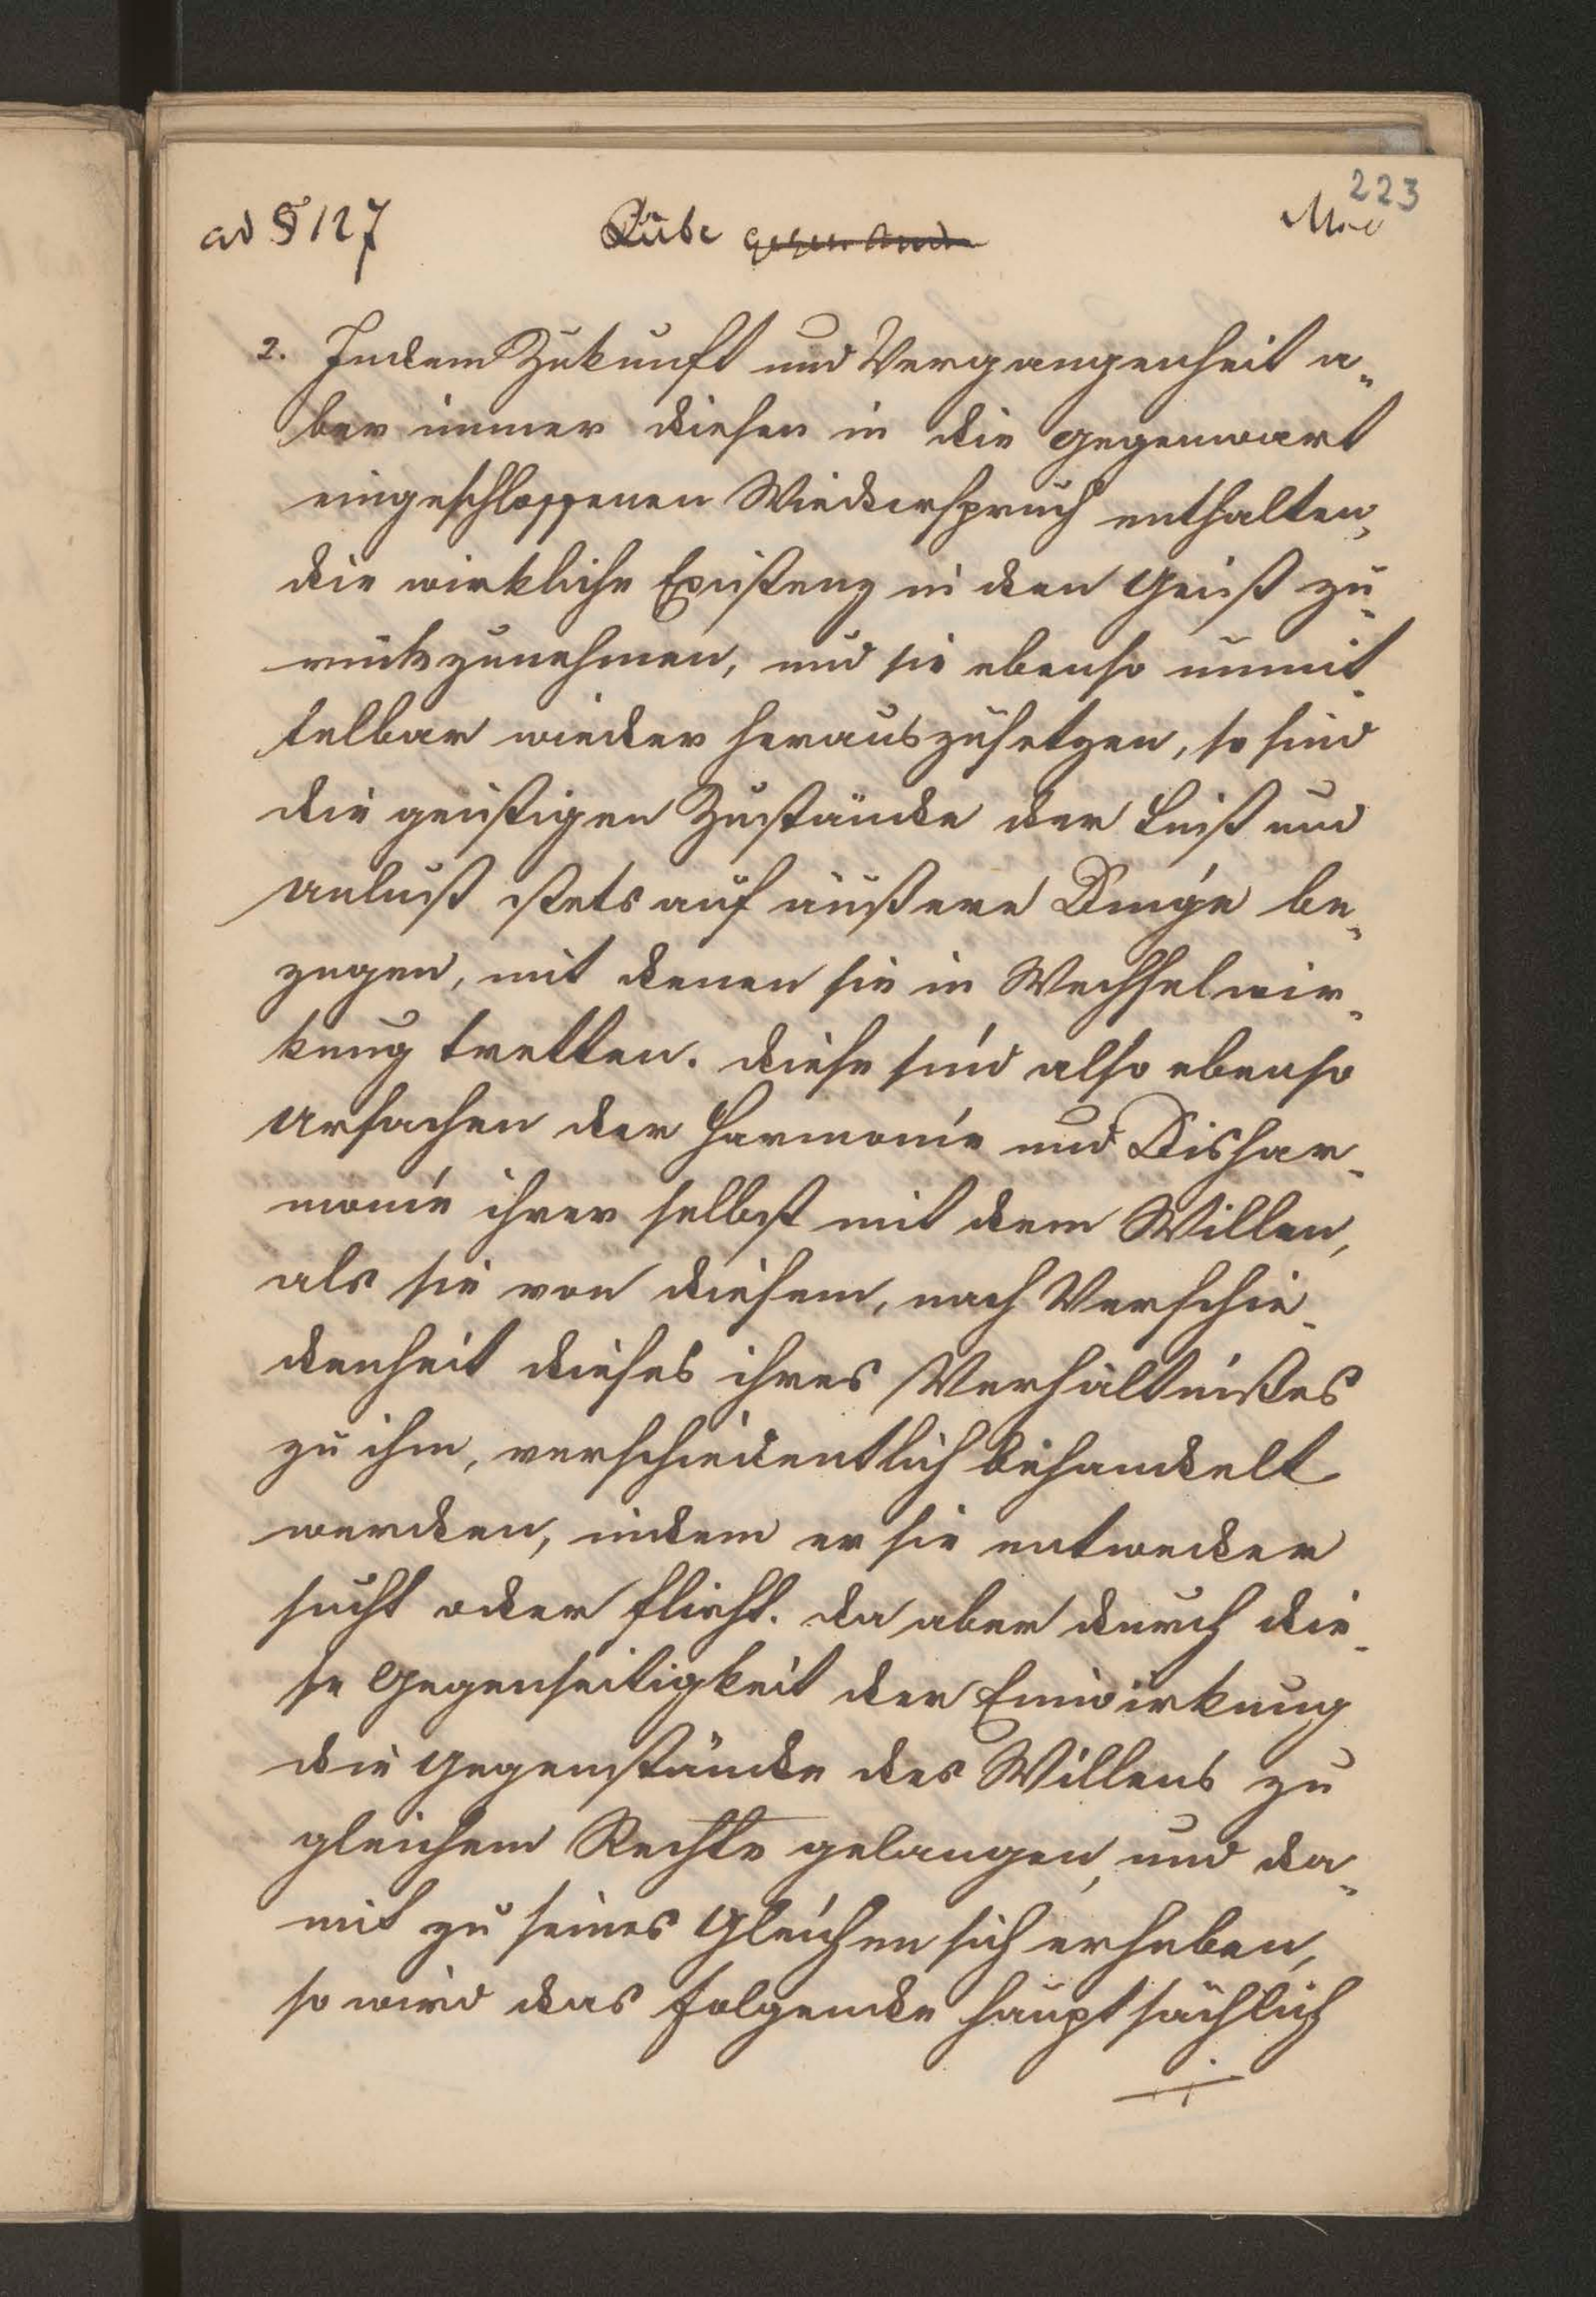 223
ad § 127 Liebe gegen And
2. Indem Zukunft und Vergangenheit a„
ber immer diesen in die Gegenwart
eingeschlossenen Wiederspruch enthalten,
die wirkliche Existenz in den Geist zu„
rückzunehmen, und sie ebenso unmit„
telbar wieder herauszusetzen, so sind
die geistigen Zustände der Lust und
Unlust stets auf äußere Dinge be„
zogen, mit denen sie in Wechselwir„
kung tretten. Diese sind also ebenso
Ursachen der Harmonie und Dishar„
monie ihrer selbst mit dem Willen,
als sie von diesem, nach Verschie„
denheit dieses ihres Verhältnißes
zu ihm, verschiedentlich behandelt
werden, indem er sie entweder
sucht oder flieht. Da aber durch die„
se Gegenseitigkeit der Einwirkung
die Gegenstände des Willens zu
gleichem Rechte gelangen, und da„
mit zu seines Gleichen sich erheben,
so wird das folgende hauptsächlich